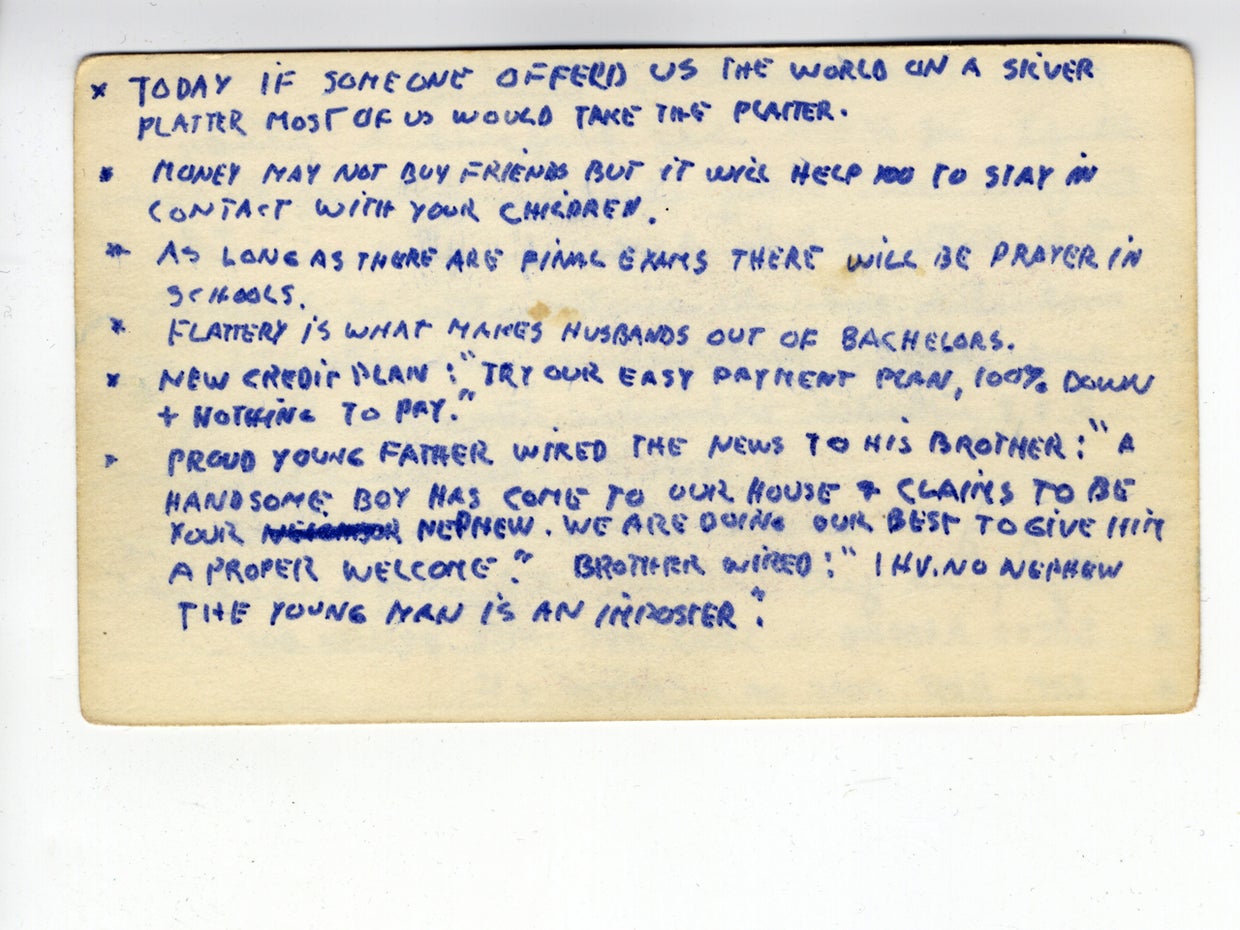 * TODAY IF SOMEONE OFFERD US THE WORLD ON A SILVER
PLATTER MOST OF US WOULD TAKE THE PLATTER.
* MONEY MAY NOT BUY FRIENDS BUT IT WILL HELP YOU TO STAY IN
CONTACT WITH YOUR CHILDREN.
* AS LONG AS THERE ARE FINAL EXAMS THERE WILL BE PRAYER IN
SCHOOLS.
* FLATTERY IS WHAT MAKES HUSBANDS OUT OF BACHELORS.
* NEW CREDIT PLAN: "TRY OUR EASY PAYMENT PLAN, 100% DOWN
+ NOTHING TO PAY."
* PROUD YOUNG FATHER WIRED THE NEWS TO HIS BROTHER: "A
HANDSOME BOY HAS COME TO OUR HOUSE + CLAIMS TO BE
YOUR NEPHEW. WE ARE DOING OUR BEST TO GIVE HIM
A PROPER WELCOME." BROTHER WIRED: "I HV. NO NEPHEW
THE YOUNG MAN IS AN IMPOSTER".